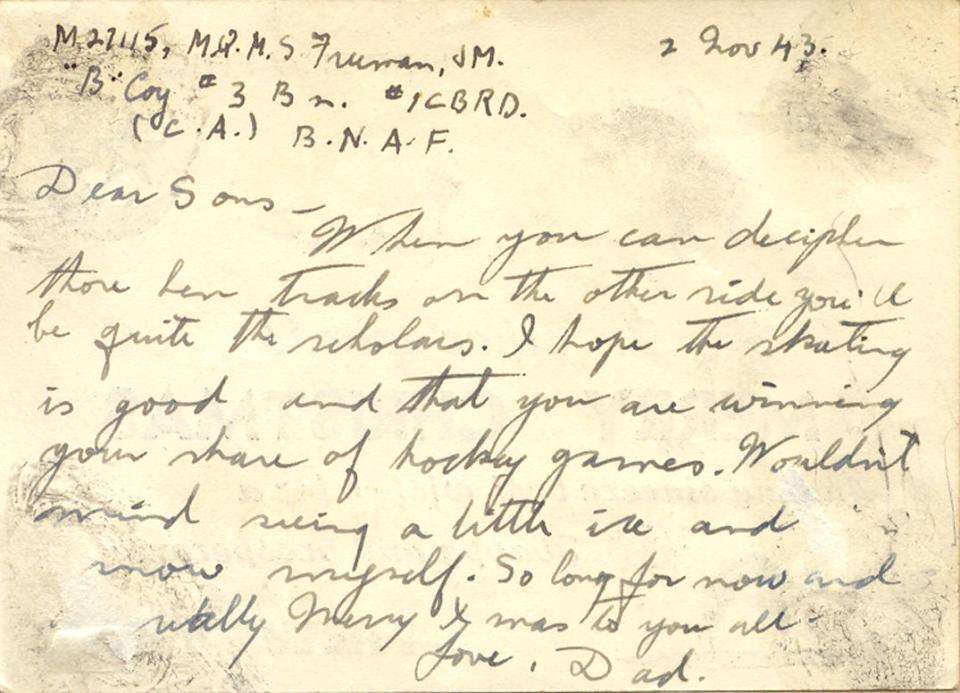 M27115, M.Q.M.S Freeman, JM. 2 Nov 43.
"B" Coy #3 Bn. #1CBRD.
(C.A.) B.N.A.F.
Dear Sons –
When you can decipher
those hen tracks on the other side you'll
be quite the scholars. I hope the skating
is good and that you are winning
your share of hockey games. Wouldn't
mind seeing a little ice and
snow myself. So long for now and
really Merry Xmas to you all
Love, Dad.